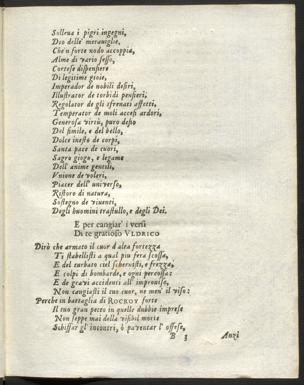 Solleua i pigri ingegni,
Dio delle merauiglie,
Che'n forte nodo accoppia,
Alme di vario sesso,
Cortese dispensiere
Di legitime gioie,
Imperador de nobili desiri,
Illustrator de torbidi pensieri,
Regolator de gli sfrenati affetti,
Temperator de moli accesi ardori,
Generosa virtù, puro desio
Del simile, e del bello,
Dolce inesto de corpi,
Santa pace de cuori,
Sagro giogo, e legame
Dell' anime gentili,
Vnione de voleri,
Piacer dell' vniuerso,
Ristoro di natura,
Sostegno de viuenti,
Degli huomini trastullo, e degli Dei.
E per cangiar' i versi
Di te gratioso VLDRICO
Dirò che armato il cuor d'alta fortezza
Ti stabilisti a qual piu fera scossa,
E del turbato ciel schernisti, e frezza,
E colpi di bombarde, e ogni percossa:
E de graui accidenti all' improuiso,
Non cangiasti il tuo cuor, ne men' il viso:
Perche in battaglia di ROCROY forte
Il tuo gran petto in quelle dubbie imprese
Non seppe mai della visibil morte
Schiffar gl' incontri, ò pauentar l' offese,
B 3 Anzi